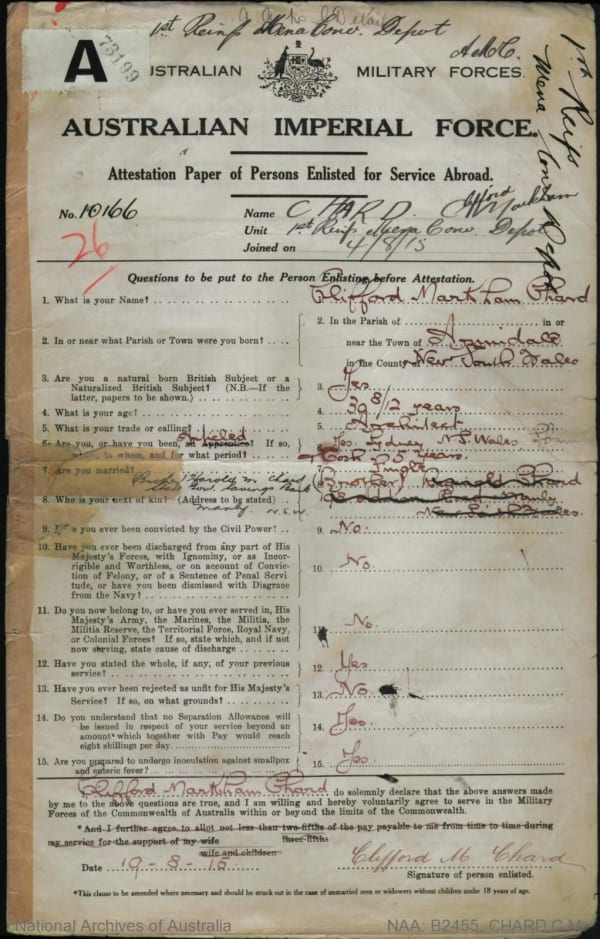 1st Reinfs Mena Conv. Depot
A.M.C.
1st Reinfs
Mena Conv Depot
A
73199
AUSTRALIAN MILITARY FORCES.
AUSTRALIAN IMPERIAL FORCE.
Attestation Paper of Persons Enlisted for Service Abroad.
No. 10166 Name CHARD. Clifford Markham
26
Unit 1st Reinfs Mena Conv. Depot
Joined on 4/8/15
Questions to be put to the Person Enlisting before Attestation.
1. What is your Name? Clifford Markham Chard
2. In or near what Parish or Town were you born? 2. In the Parish of in or
near the Town of Armidale
in the County of New South Wales
3. Are you a natural born British Subject or a
Naturalized British Subject? (N.B.—If the
latter, papers to be shown.) 3. Yes
4. What is your age? 4. 39 8/12 years
5. What is your trade or calling? 5. Architect
6. Are you, or have you been, an Apprentice? If so, Articled
where, to whom, and for what period? 6. Yes. Sydney N.S. Wales
5 years.
7. Are you married? 7. Single
8. Who is your next of kin? (Address to be stated) (Brother) Harold M. Chard
Savings Bank
Manly N.S.W.
8. (Brother) Harold Chard
Manly
New South Wales.
9. Have you ever been convicted by the Civil Power? 9. No.
10. Have you ever been discharged from any part of His
Majesty's Forces, with Ignominy, or as Incor-
rigible and Worthless, or on account of Convic-
tion of Felony, or of a Sentence of Penal Servi
tude, or have you been Dismissed with Disgrace
from the Navy? 10. No
11. Do you now belong to, or have you ever served in, His
Majesty's Army, the Marines, the Militia, the
Militia Reserve, the Territorial Force, Royal Navy,
or Colonial Forces? If so, state which, and if not
now serving, state cause of discharge 11. No.
12. Have you stated the whole, if any, of your previous
service? 12. Yes
13. Have you ever been rejected as unfit for His Majesty's
Service? If so, on what grounds? 13. No
14. Do you understand that no Separation Allowance will
be issued in respect of your service beyond an
amount which together with Pay would reach
eight shillings per day. 14. Yes.
15. Are you prepared to undergo inoculation against smallpox
and enteric fever? 15. Yes.
I, Clifford Markham Chard do solemnly declare that the above answers made
by me to the above questions are true, and I am willing and hereby voluntarily agree to serve in the Military
Forces of the Commonwealth of Australia within or beyond the limits of the Commonwealth.
*And I further agree to allot not less than two-fifths of the pay payable to me from time to time during
three-fifths
my service for the support of my wife
wife and children
Date 19-8-15 Clifford M Chard
Signature of person enlisted.
*This clause to be amended where necessary and should be struck out in the case of unmarried men or widowers without children under 18 years of age.
National Archives of Australia NAA: B2455, CHARD C M